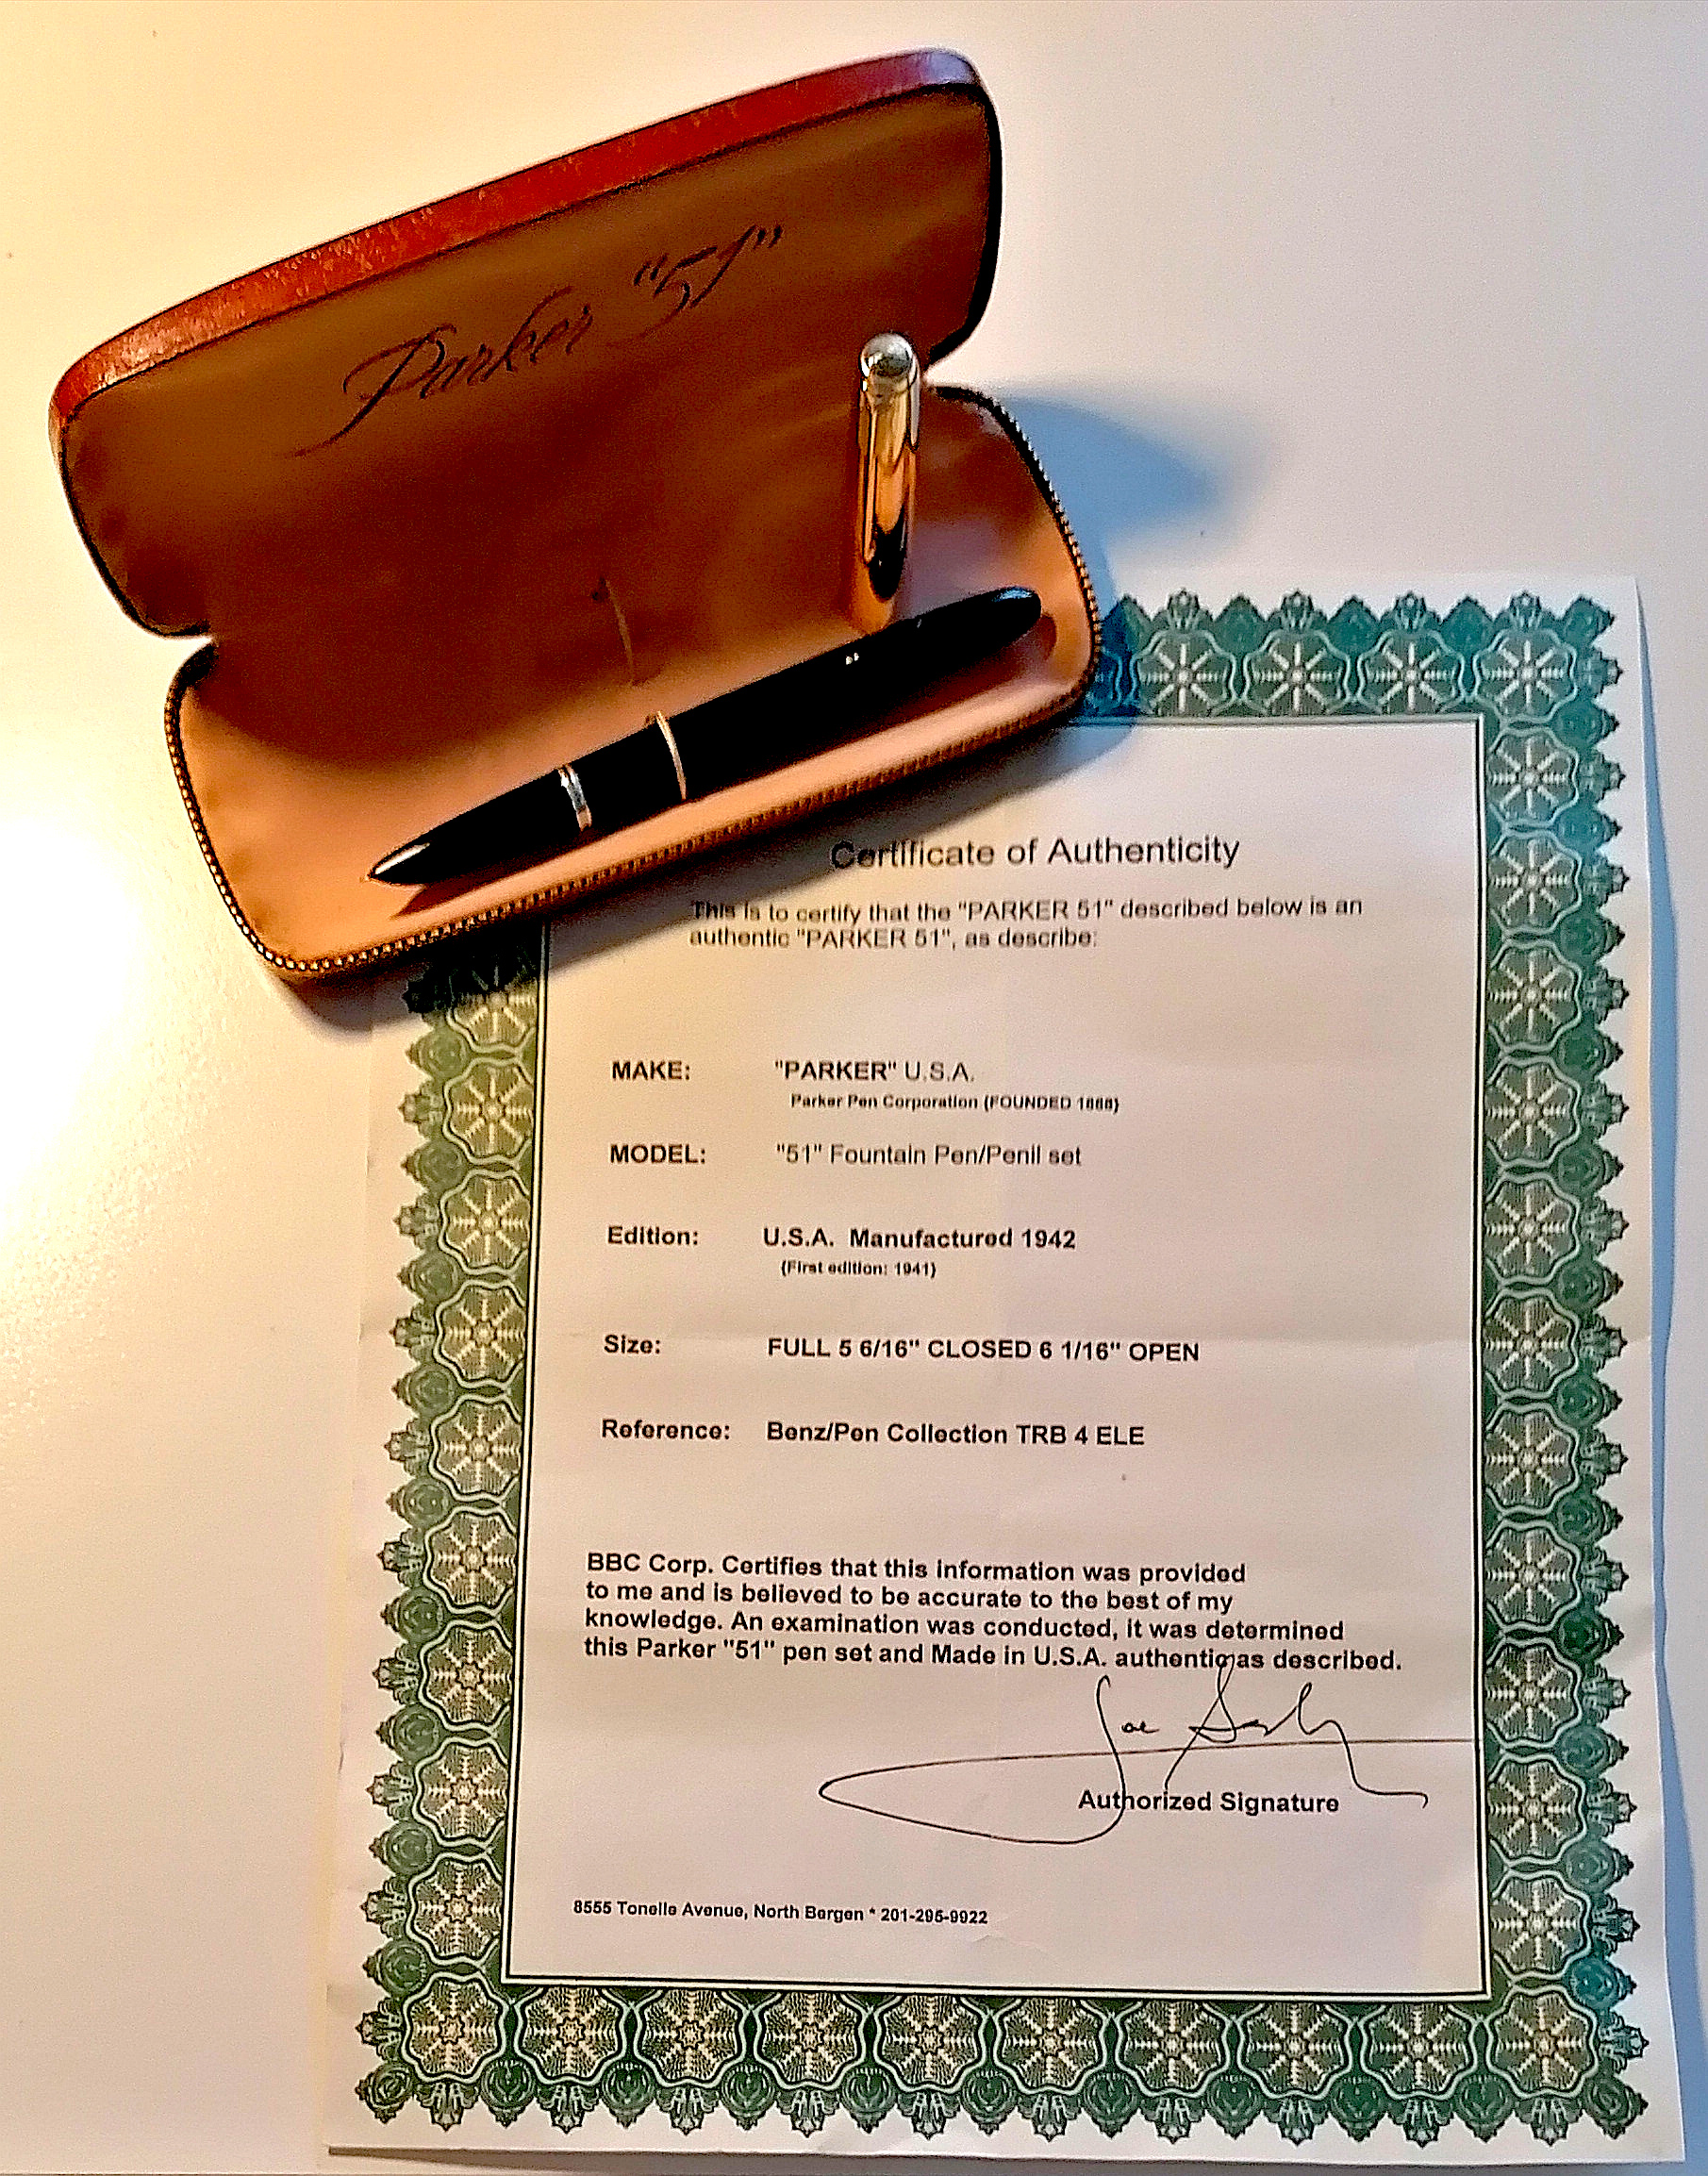 Parker "51"
Certificate of Authenticity
This is to certify that the "PARKER 51" described below is an
authentic "PARKER 51", as describe:
MAKE: "PARKER" U.S.A.
Parker Pen Corporation (FOUNDED 1888)
MODEL: "51" Fountain Pen/Penil set
Edition: U.S.A. Manufactured 1942
(First edition: 1941)
Size: FULL 5 6/16" CLOSED 6 1/16" OPEN
Reference: Benz/Pen Collection TRB 4 ELE
BBC Corp. Certifies that this information was provided
to me and is believed to be accurate to the best of my
knowledge. An examination was conducted, it was determined
this Parker "51" pen set and Made in U.S.A. authentic as described.
Joe
Authorized Signature
8555 Tonelle Avenue, North Bergen * 201-295-9922